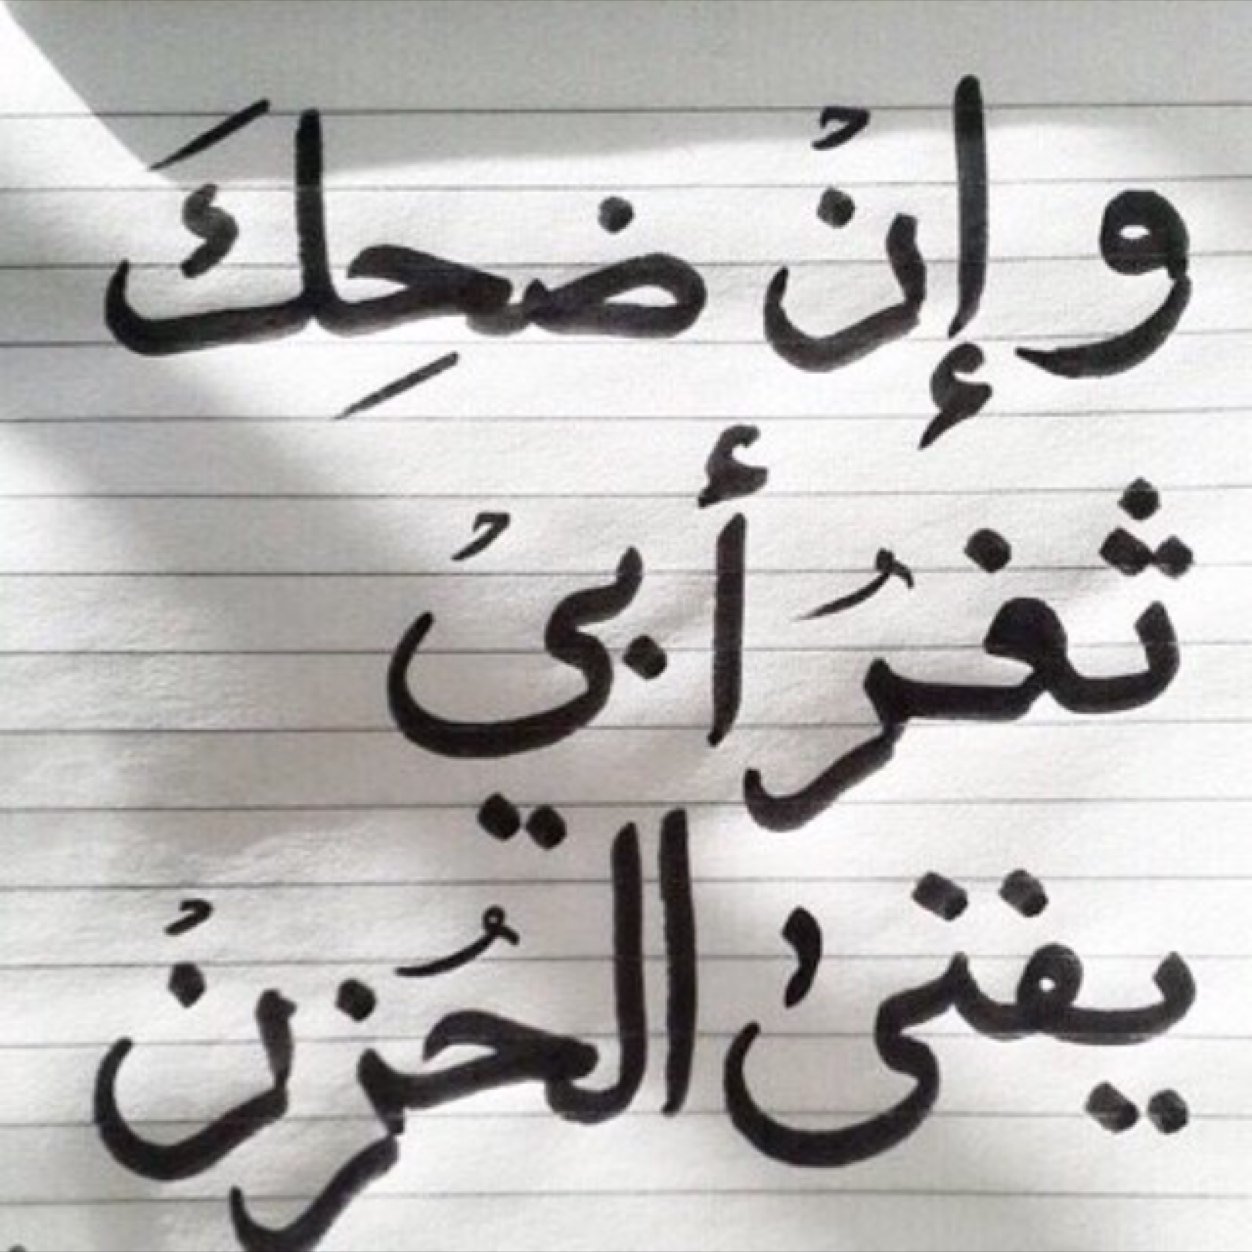 وإنْ ضحِكَ
ثغرُ أبيْ
يفنىٰ الحُزنْ